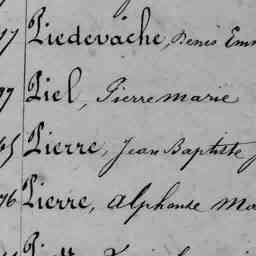 Piedevache, Denis Em
Piel, Pierre Marie
Pierre, Jean Baptiste
76 Pierre, Alphonse Ma